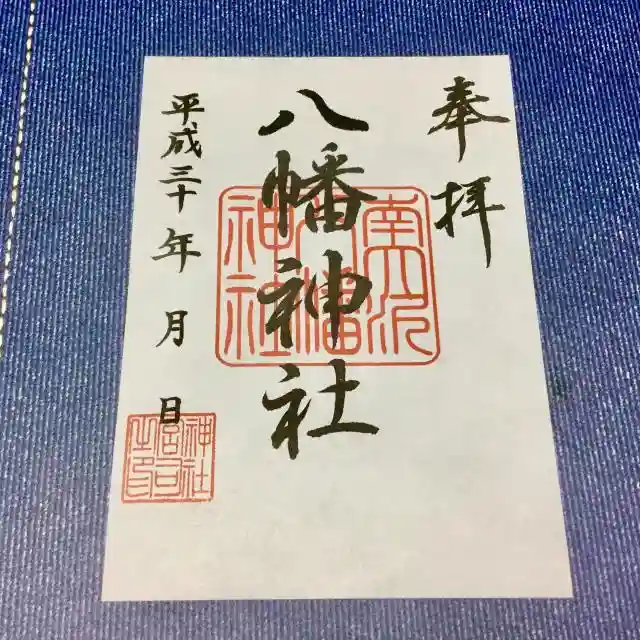 奉拝
八幡神社
平成三十年 月 日
南沢
八幡
神社
神社
宮司
之印